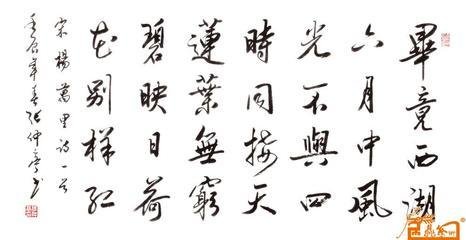 畢竟西湖
六月中風
光不與四
時同接天
蓮葉無窮
碧映日荷
花別樣红
宋楊萬里詩一首
壬辰年春张仲亭书